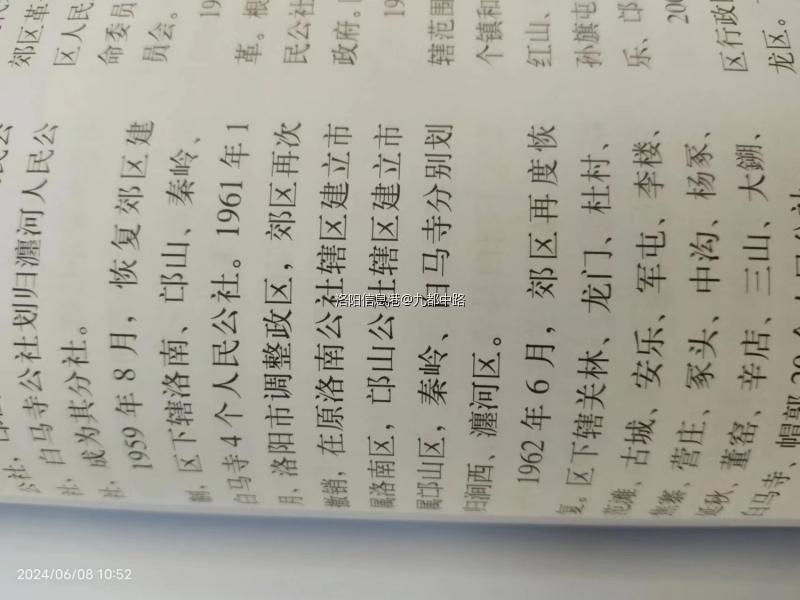 社，白马寺公社划归瀍河人民公
社，成为其分社。
1959年8月，恢复郊区建
制，区下辖洛南、邙山、秦岭、
白马寺4个人民公社。1961年1
月，洛阳市调整政区，郊区再次
撤销，在原洛南公社辖区建立市
属洛南区，邙山公社辖区建立市
属邙山区，秦岭、白马寺分别划
归涧西、瀍河区。
1962年6月，郊区再度恢
复。区下辖关林、龙门、杜村、
范滩、古城、安乐、军屯、李楼、
焦寨、营庄、冢头、中沟、杨冢、
董窑、辛店、三山、大
白马寺、帽郭20个人民公社
郊区革
区人民
命委员
员会。
19
革。根
民公社
政府。
19
辖范围
个镇和
红山、
孙旗屯
乐、邙
200
区行政
龙区。
洛阳信息港@九都中路
2024/06/08 10:52